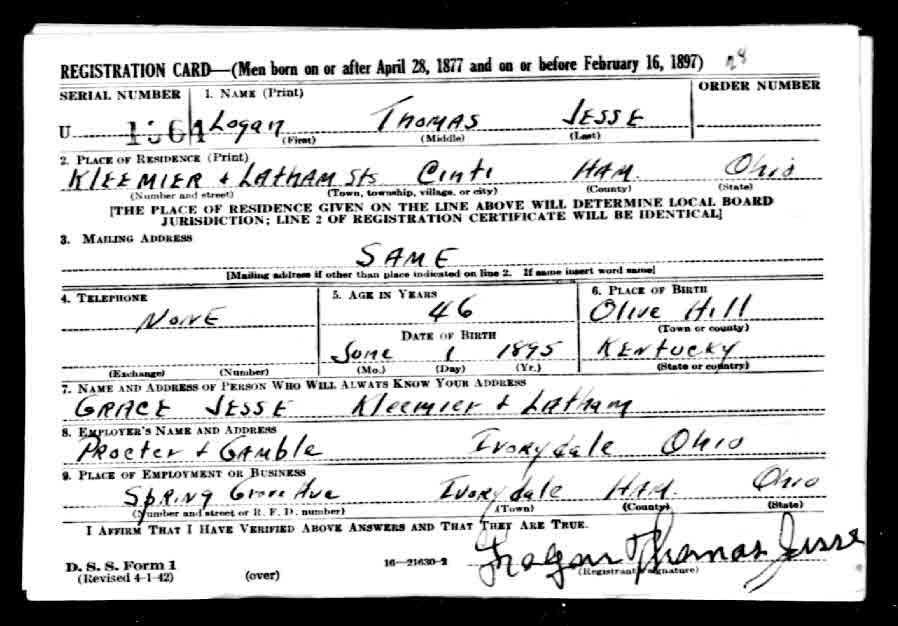 REGISTRATION CARD—(Men born on or after April 28, 1877 and on or before February 16, 1897) 28
SERIAL NUMBER 1. NAME (Print) ORDER NUMBER
U Logan THOMAS JESSE
(First) (Middle) (Last)
2. PLACE OF RESIDENCE (Print)
KLEEMIER + LATHAM Sts Cinti HAM. Ohio
(Number and street) (Town, township, village, or city) (County) (State)
[THE PLACE OF RESIDENCE GIVEN ON THE LINE ABOVE WILL DETERMINE LOCAL BOARD
JURISDICTION; LINE 2 OF REGISTRATION CERTIFICATE WILL BE IDENTICAL]
3. MAILING ADDRESS
SAME
[Mailing address if other than place indicated on line 2. If same insert word same]
4. TELEPHONE 5. AGE IN YEARS 6. PLACE OF BIRTH
NONE 46 Olive Hill
DATE OF BIRTH (Town or county)
June 1 1895 KENTUCKY
(Exchange) (Number) (Mo.) (Day) (Yr.) (State or country)
7. NAME AND ADDRESS OF PERSON WHO WILL ALWAYS KNOW YOUR ADDRESS
GRACE JESSE Kleemier + Latham
8. EMPLOYER'S NAME AND ADDRESS
Procter + Gamble Ivorydale Ohio
9. PLACE OF EMPLOYMENT OR BUSINESS
Spring Grove Ave Ivorydale HAM. Ohio
(Number and street or R. F. D. number) (Town) (County) (State)
I AFFIRM THAT I HAVE VERIFIED ABOVE ANSWERS AND THAT THEY ARE TRUE.
D. S. S. Form 1 16—21630-2 Logan Thomas Jesse
(Revised 4-1-42) (over) (Registrant's signature)